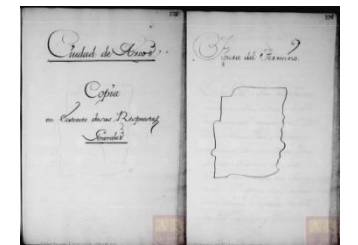 Ciudad de Arcos
Copia
en Extracto de sus Respuestas
Generales
Figura del Termino